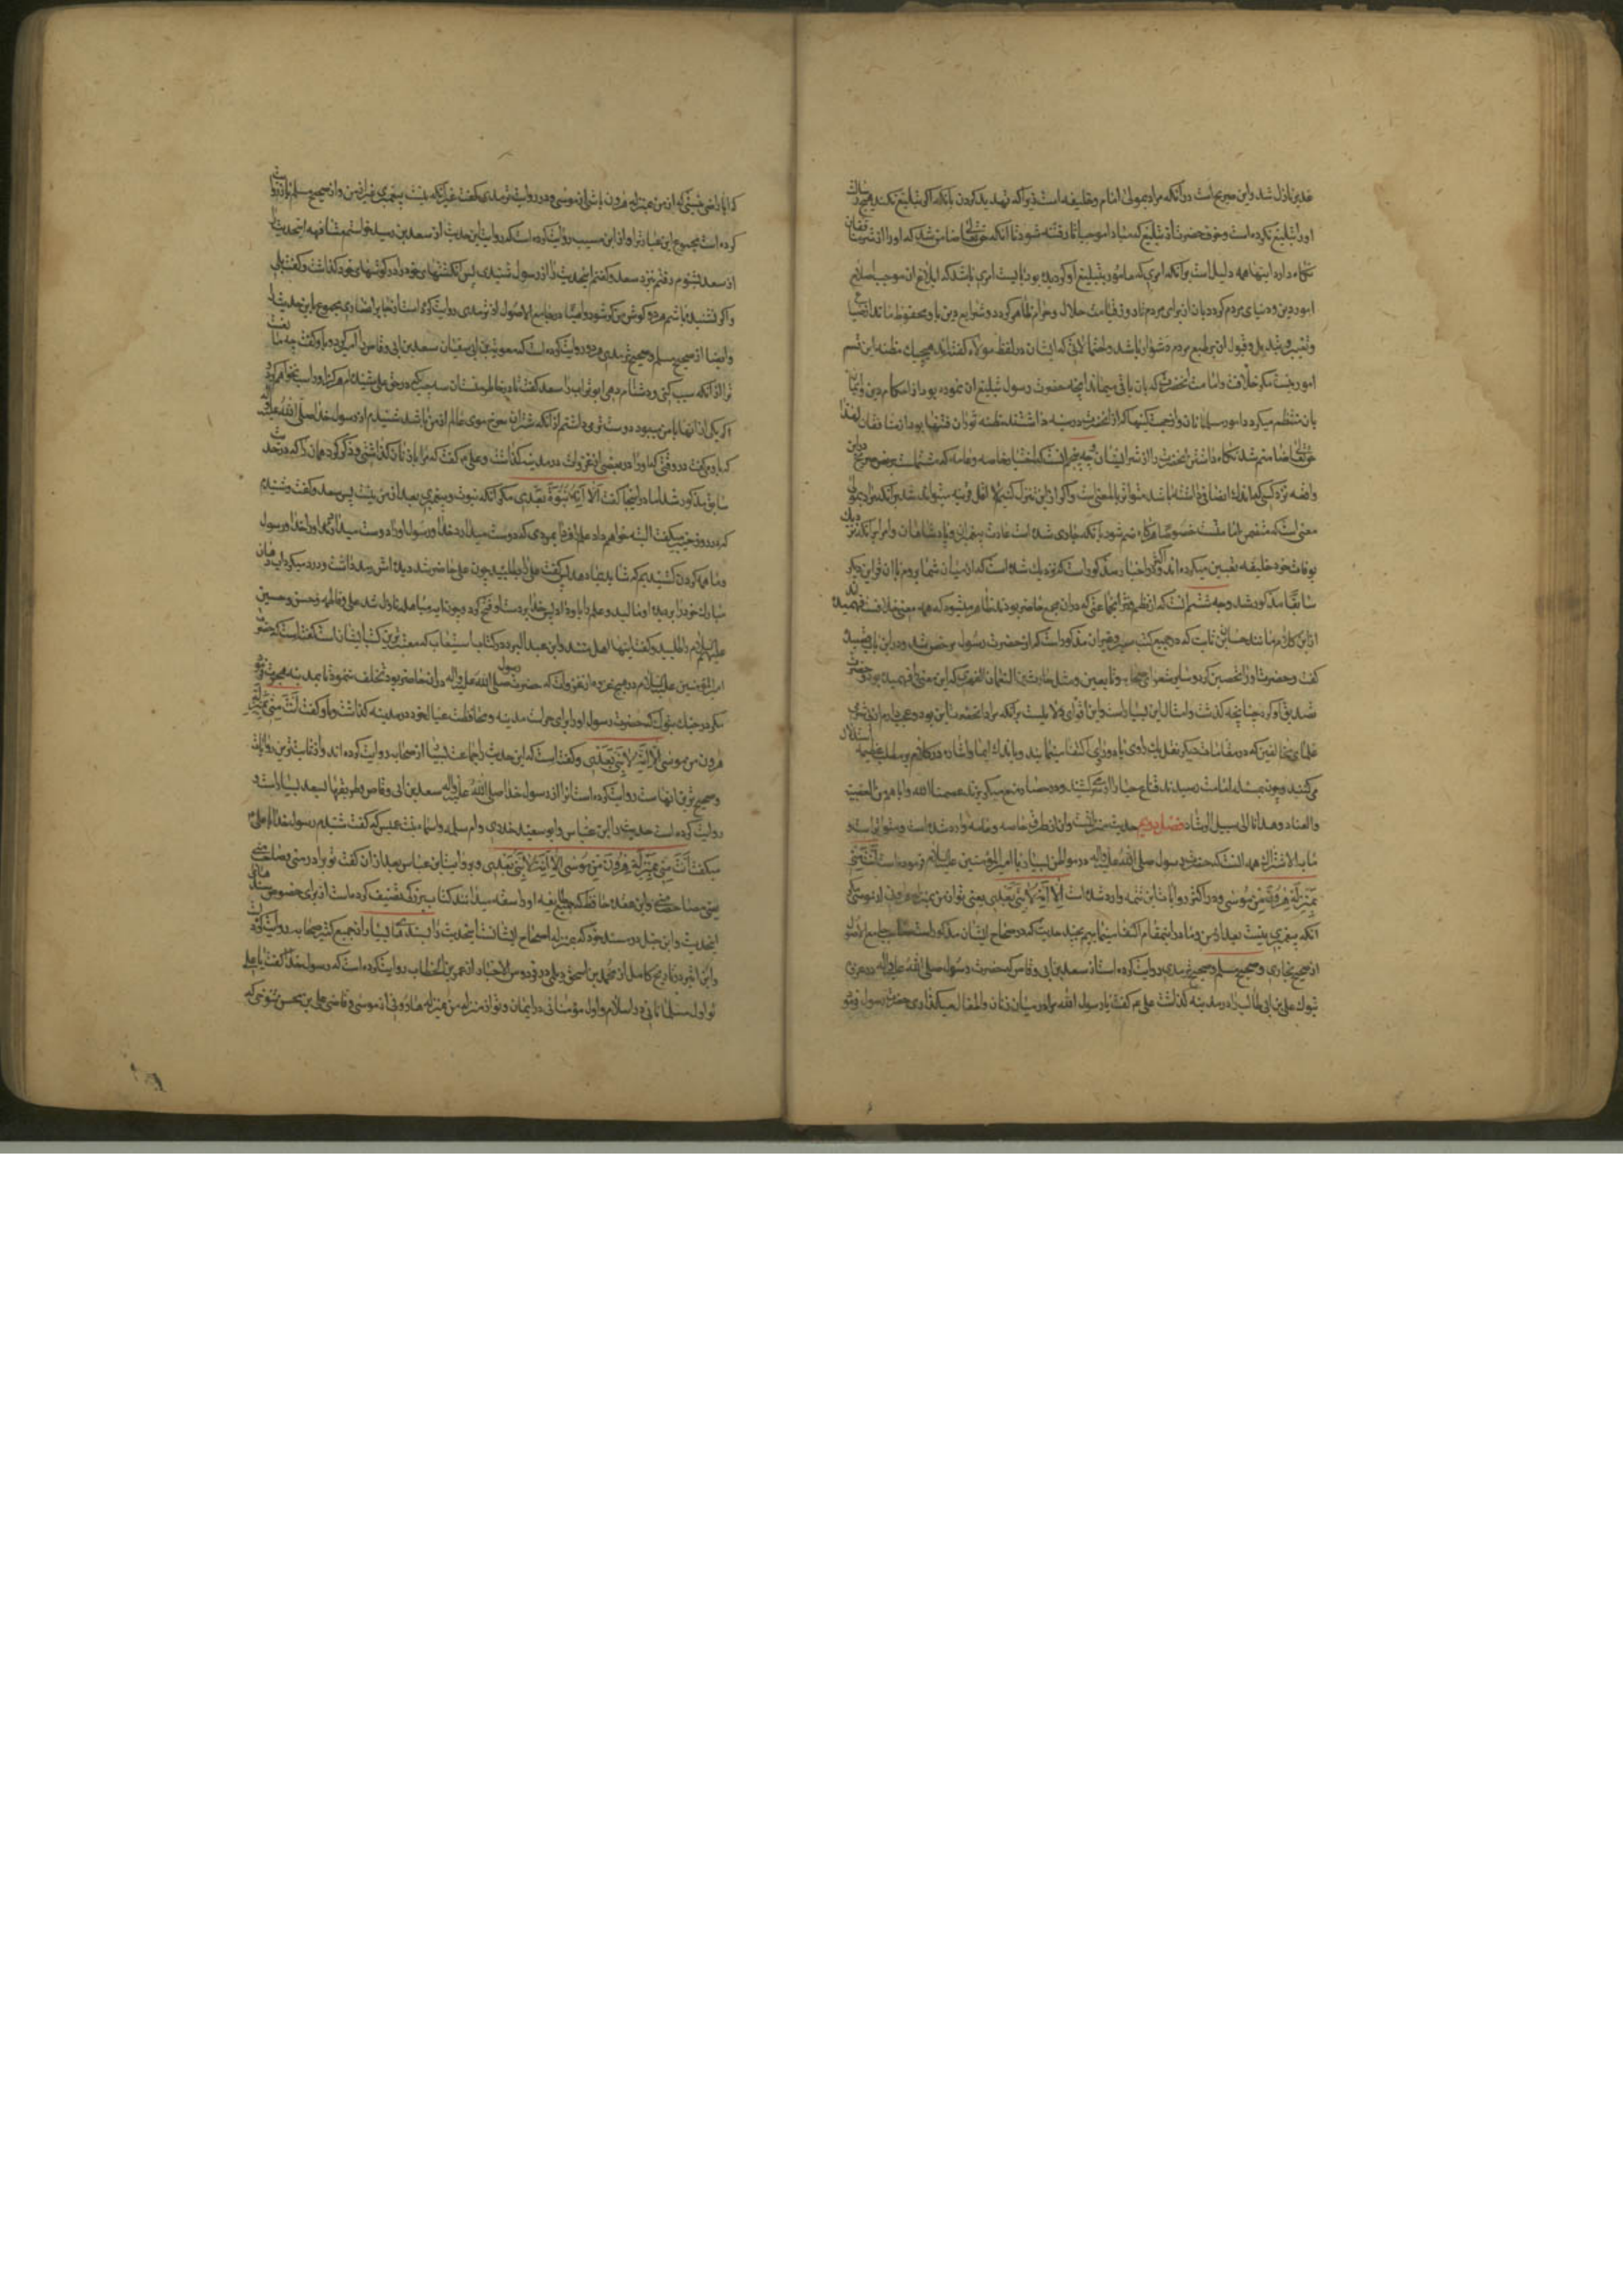 غدیر نازل شد و این صریح است در آنکه مراد بمولی امام و خلیفه است زیرا که تهدید کردن بآنکه اگر تبلیغ نکند هیچ رسالت
او را تبلیغ نکرده است و خوف حضرت از تبلیغ که مبادا موجب اثاره فتنه شود تا آنکه حق تعالی ضامن شد که او را از شر منافقان
نگاه دارد اینها همه دلیل است بر آنکه امری که مامور بتبلیغ او گردیده بود بایست امری باشد که ابلاغ آن موجب اصلاح
امور دین و دنیای مردم گردد و بآن از برای مردم تا روز قیامت حلال و حرام ظاهر گردد و شرایع دین باو محفوظ ماند از ضیاع
و تغییر و تبدیل و قبول آن بر طبع مردم دشوار باشد و احتمالاتی که ایشان در لفظ مولا گفته اند هیچیک مظنه این قسم
امور نیست مگر خلافت و امامت آنحضرت که بآن باقی میماند آنچه حضرت رسول تبلیغ آن نموده بود از احکام دین و ایمان
بآن منتظم میگردد امور مسلمانان و از جهت کینها که از آنحضرت در سینه داشتند مظنه ثوران فتنها بود از منافقان لهذا
حق تعالی ضامن شد نگاه داشتن آنحضرت را از شر ایشان وجه پنجم آنست که اخبار خاصه و عامه که مشتملست بر نص صریح در این
واقعه نزد کسی که اندک انصافی داشته باشد متواتر بالمعنی است و اگر از این تنزل کنیم لا اقل قرینه میتواند شد بر آنکه مراد بمولی
معنی است که متضمن امامت است خصوصا هرگاه ضم شود بآنکه جاری شده است عادت پیغمبران و پادشاهان و امرا بر آنکه نزدیک
بوفات خود خلیفه تعیین میکرده اند و در اکثر اخبار مذکور است که نزدیک شده است که از میان شما بروم با آن قراین دیگر
سابقا مذکور شد وجه ششم آنست که از نظم و نثر جماعتی که در آن مجمع حاضر بودند ظاهر میشود که همه معنی خلافت فهمیده اند
از این کلام مانند حسان بن ثابت که در جمیع کتب سیر و غیر آن مذکور است که از حضرت رسول مرخص شد و در این باب قصیده
گفت و حضرت او را تحسین کرد و سایر شعرای صحابه و تابعین و مثل حارث بن النعمان الفهری که این معنی را فهمیده بود و حضرت
تصدیق او کرد چنانچه گذشت و امثال این بسیار است و این اقوای دلایلست بر آنکه مراد آنحضرت این بود و عجب دارم از
علمای مخالفین که در مقامات دیگر بنقل یک راوی یا دو راوی اکتفا مینمایند و باندک ایما و اشاره در کلام بر مطلب عظیمه استدلال
می کنند و چون بمسئله امامت رسیدند قناع حیا را از سر کشیده در حصار منع میگریزند عصمنا الله و ایاهم من العصبیة
و العناد و هدانا الی سبیل الرشاد فصل دویم حدیث منزلت است و آن از طرق خاصه و عامه وارد شده است و متواتر است و
ما به الاشتراک همه آنست که حضرت رسول صلی الله علیه و آله در مواطن بسیار با امیر المؤمنین علیه السلام فرموده است انت منی
بمنزلة هرون من موسی و در اکثر روایات این تتمه وارد شده است الا انه لا نبی بعدی یعنی تو از من بمنزله هارونی از موسی مگر
آنکه پیغمبری نیست بعد از من و ما در این مقام اکتفا مینماییم بچند حدیث که در صحاح ایشان مذکور است صاحب جامع الاصول
از صحیح بخاری و صحیح مسلم و صحیح ترمذی روایت کرده است از سعد بن ابی وقاص که حضرت رسول صلی الله علیه و آله در غزوه
تبوک علی بن ابی طالب را در مدینه گذاشت علی ع م گفت یا رسول الله مرا در میان زنان و اطفال میگذاری حضرت رسول فرمود
که آیا راضی نیستی که از من بمنزله هرون باشی از موسی و در روایت ترمذی گفت غیر آنکه نیست پیغمبری غیر از من و از صحیح مسلم نیز روایت
کرده است مجموع این عبارت را و از ابن مسیب روایت کرده است که روایت این حدیث از سعد بن رسید خواستم مشافهه این حدیث را
از سعد بشنوم رفتم نزد سعد و گفتم این حدیث را از رسول شنیدی پس انگشتهای خود را در گوشهای خود گذاشت و گفت بلی
و اگر نشنیده باشم هر دو گوش من کر شود و ایضا در جامع الاصول از ترمذی روایت کرده است از جابر انصاری مجموع این حدیث را
و ایضا از صحیح مسلم و صحیح ترمذی هر دو روایت کرده است که معویة بن ابی سفیان سعد بن ابی وقاص را امیر کرد و باو گفت چه مانعست
ترا از آنکه سب کنی و دشنام دهی ابو تراب را سعد گفت تا در خاطر منست آن سه چیز که در حق علی شنیده ام هرگز او را سب نخواهم کرد و
اگر یکی از آنها با من میبود دوست تر می داشتم از آنکه شتران سرخ موی عالم از من باشد شنیدم از رسول خدا صلی الله علیه و آله
که باو می گفت در وقتی که او را در بعضی از غزوات در مدینه گذاشت و علی ع م گفت که مرا با زنان گذاشتی و ذکر کرد همان را که در حدیث
سابق مذکور شد اما در اینجا گفت الا انه لا نبوة بعدی مگر آنکه نبوت و پیغمبری بعد از من نیست پس سعد گفت و شنیدم
که در روز خیبر میگفت البته خواهم داد علم را فردا بمردی که دوست میدارد خدا و رسول او را و دوست میدارند او را خدا و رسول
و ما همه گردن کشیدیم که شاید بما بدهد پس گفت علی را بطلبید چون علی حاضر شد دیده اش رمد داشت و درد میکرد آب دهان
مبارک خود را بر دیده او مالید و علم را باو داد پس خدا بر دست او فتح کرد و چون آیه مباهله نازل شد علی و فاطمه و حسن و حسین
علیهم السلام را طلبید و گفت اینها اهل منند و ابن عبد البر در کتاب استیعاب که معتبرترین کتب ایشان است گفته است که حضرت
امیر المؤمنین علیه السلام در هیچ غزوه از غزوات که حضرت رسول صلی الله علیه و آله در آن حاضر بود تخلف ننمود تا بمدینه هجرت نمود
مگر در جنک تبوک که حضرت رسول او را برای حراست مدینه و محافظت عیال خود در مدینه گذاشت و باو گفت انت منی بمنزلة
هرون من موسی الا انه لا نبی بعدی و گفته است که این حدیث را جماعت بسیار از صحابه روایت کرده اند و از ثابت ترین روایات
و صحیح ترین آنهاست روایت کرده است آنرا از رسول خدا صلی الله علیه و آله سعد بن ابی وقاص و طریقها سعد بسیار است و
روایت کرده است حدیث را ابن عباس و ابو سعید خدری و ام سلمه و اسما بنت عمیس که گفت شنیدم رسول خدا با علی
میگفت انت منی بمنزلة هرون من موسی الا انه لا نبی بعدی و بروایت ابن عباس بعد از آن گفت تو برادر منی و صاحب منی
یعنی مصاحب منی و ابن عقده حافظ که جمیع طایفه او را ثقه میدانند کتاب بزرگی تصنیف کرده است از برای خصوص سندهای
این حدیث و ابن حنبل در مسند خود که بمنزله اصحاح ایشانست این حدیث را بسندهای بسیار از جمع کثیر صحابه روایت کرده
و ابن اثیر در تاریخ کامل از محمد بن اسحق و دیلمی در فردوس الاخبار از عمر بن الخطاب روایت کرده است که رسول خدا گفت یا علی
تو اول مسلمانانی در اسلام و اول مؤمنانی در ایمان و تو از من بمنزله هارونی از موسی و قاضی علی بن محسن تنوخی که